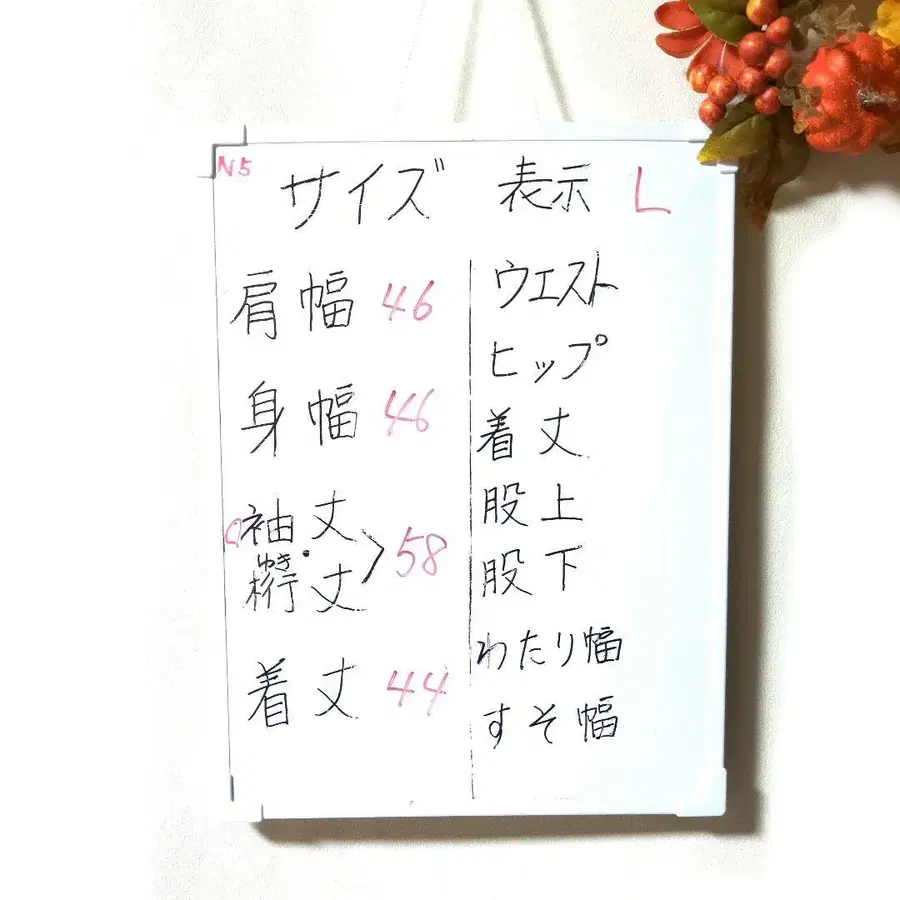 N5
サイズ 表示 L
肩幅 46
身幅 46
袖丈
ゆき
裄丈 > 58
着丈 44
ウエスト
ヒップ
着丈
股上
股下
わたり幅
すそ幅